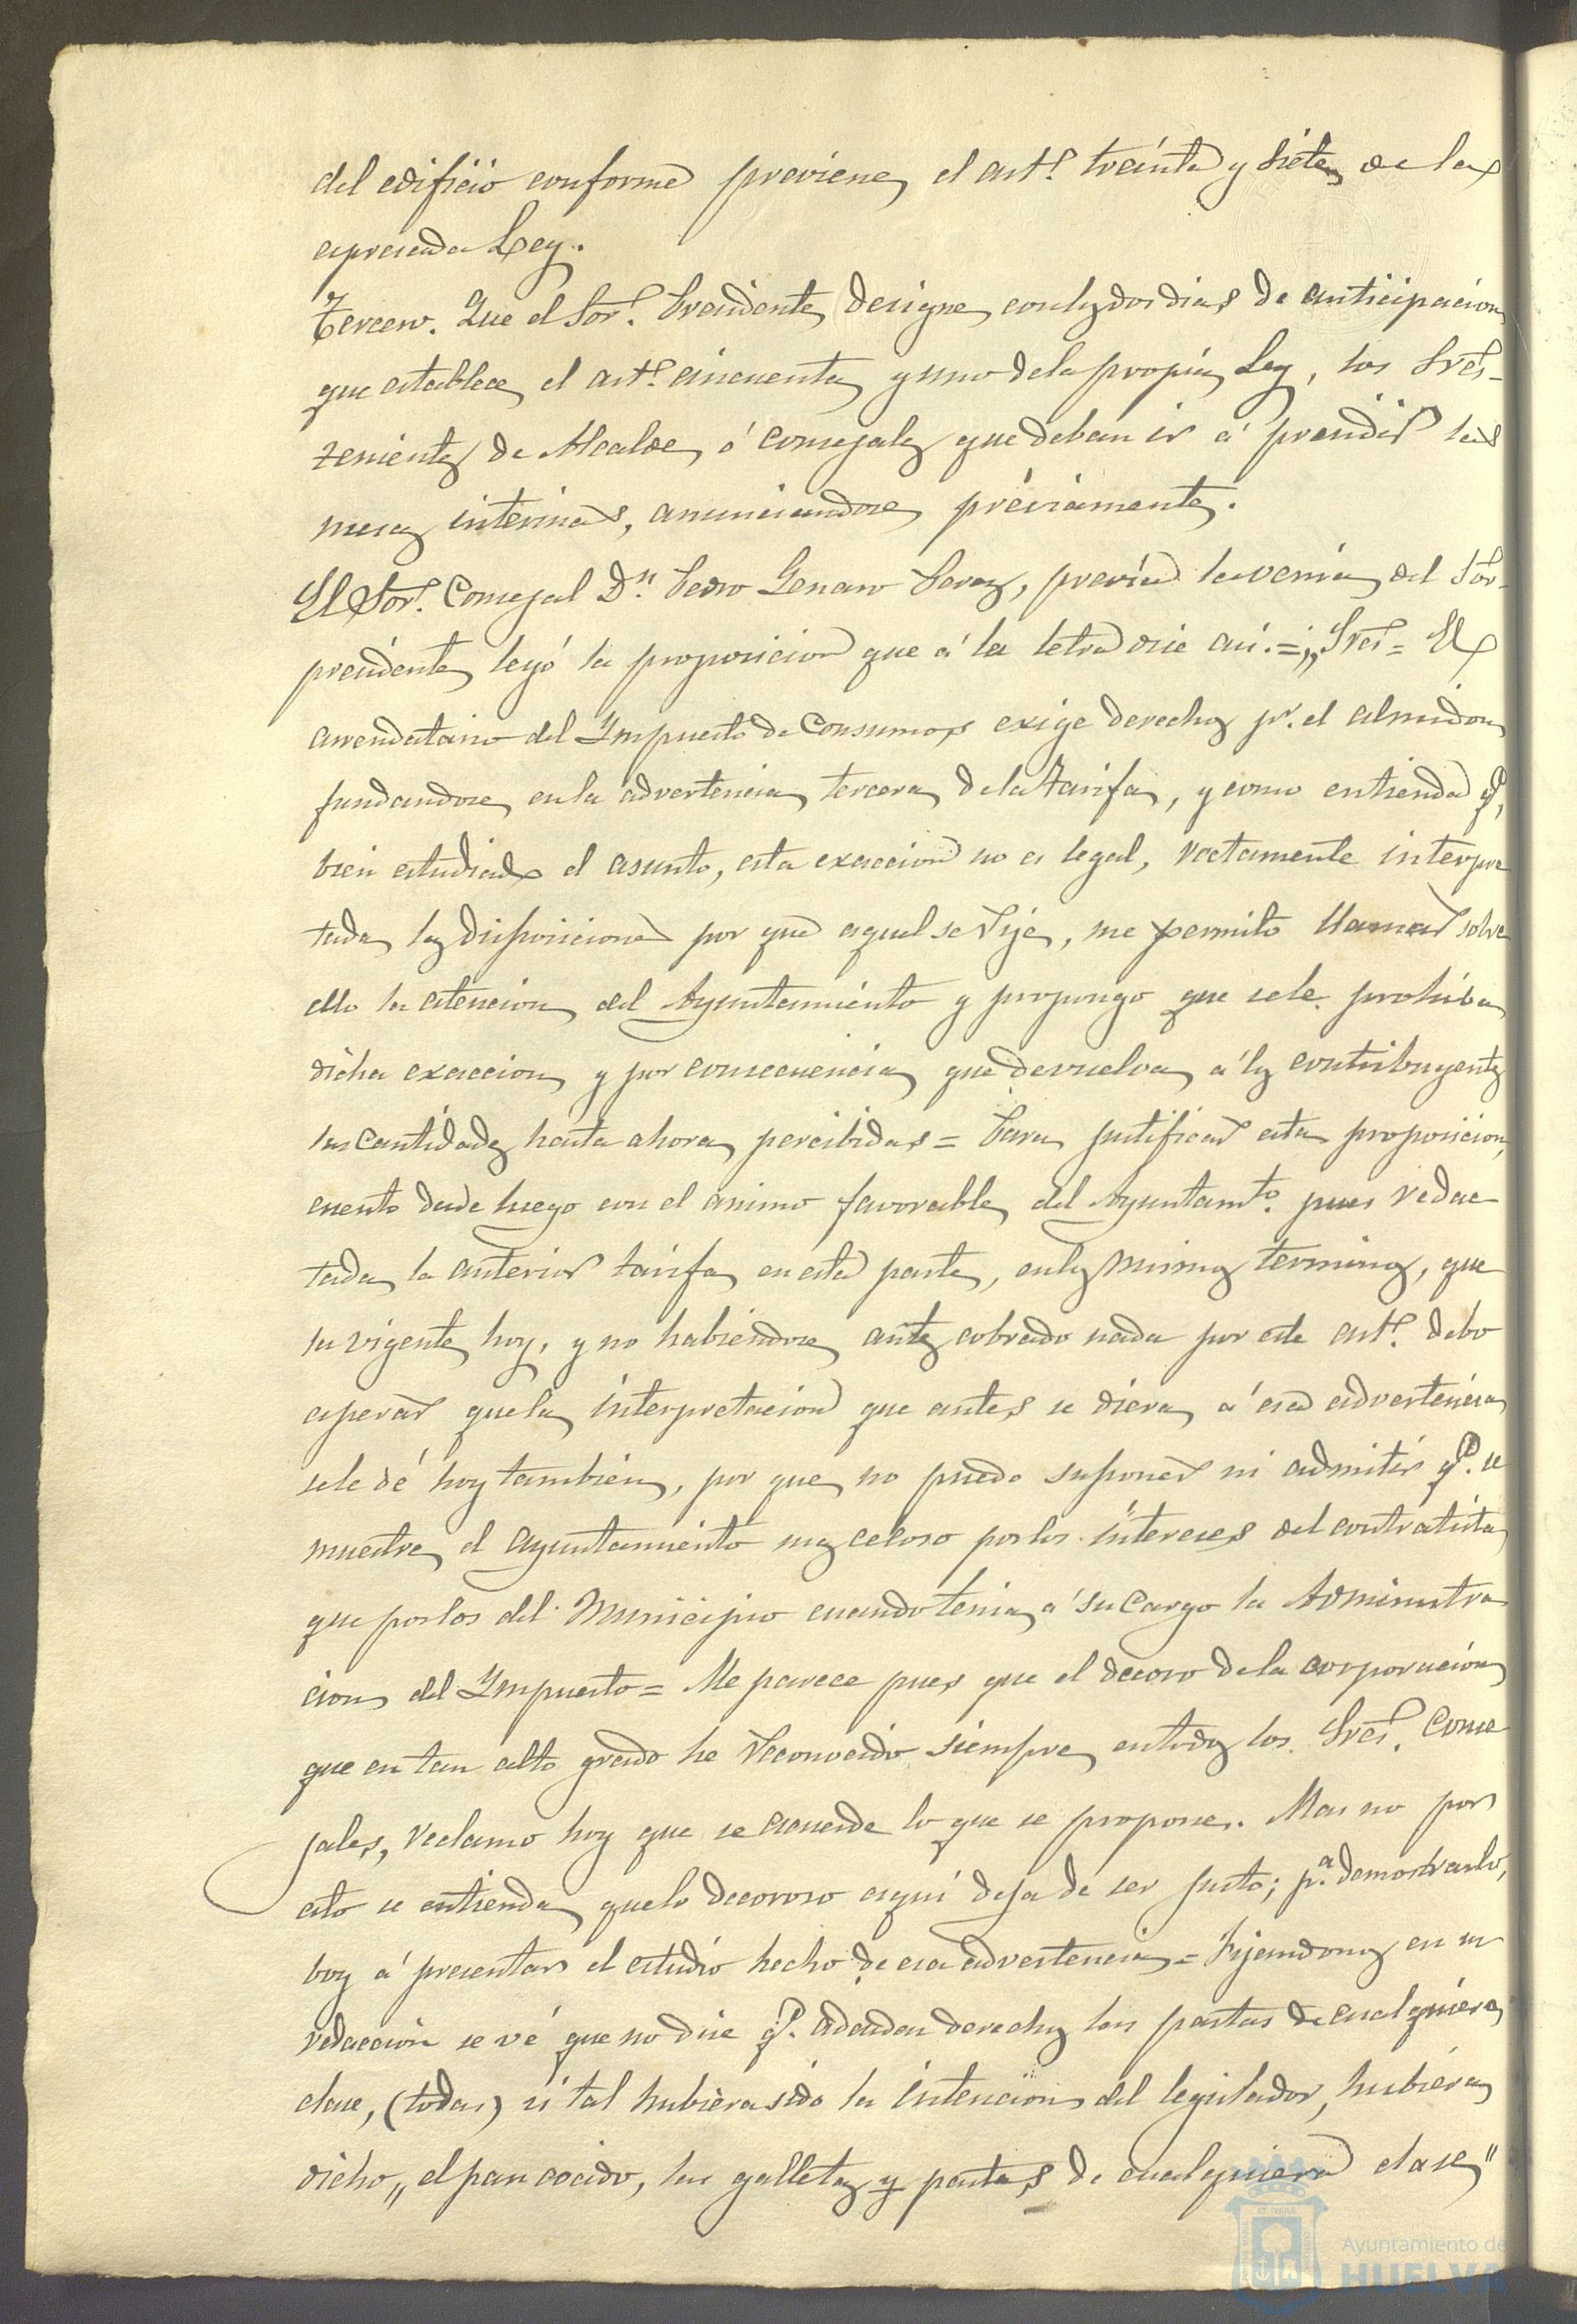 del edificio conforme previene el artº. treinta y siete de la
espresada Ley.
Tercero. Que el Sor. Presidente designe con los dos dias de anticipacion
que establece el artº. cincuenta y uno de la propia Ley, los Sres.
tenientes de Alcalde, ó Concejales que deban ir á presidir las
mesas interinas, anunciandose préviamente.
El Sor. Concejal Dn. Pedro Genaro Perez, previa la venia del Sor.
presidente leyó la proposicion que á la letra dice asi.=„Sres= El
arrendatario del Impuesto de Consumos exige derechos pr. el almidon
fundandose en la advertencia tercera de la tarifa, y como entienda qe,
bien estudiado el asunto, esta exaccion no es legal, rectamente interpre
tada las disposiciones por que aquel se rije, me permito llamar sobre
ello la atencion del Ayuntamiento y propongo que se le prohiba
dicha exaccion y por consecuencia que devuelva á los contribuyentes
las cantidades hasta ahora percibidas= Para justificar esta proposicion,
cuento desde luego con el animo favorable del Ayuntamto. pues redac
tada la anterior tarifa en esta parte, en los mismos terminos, que
la vigente hoy, y no habiendose antes cobrado nada por este artº. debo
esperar que la interpretacion que antes se diera á esa advertencia
se le dé hoy tambien, por que no puedo suponer ni admitir qe. se
muestre el Ayuntamiento mas celoso por los intereses del contratista
que por los del Municipio cuando tenia á su cargo la Administra
cion del Impuesto= Me parece pues que el decoro de la corporacion
que en tan alto grado he reconocido siempre en todos los Sres. Conce
jales, reclama hoy que se acuerde lo que se propone. Mas no por
esto se entienda que lo decoroso aqui deja de ser justo; pa. demostrarlo,
boy á presentar el estudio hecho de esa advertencia= Fijandonos en su
redaccion se vé que no dice qe. adeudan derechos las pastas de cualquiera
clase, (todas) si tal hubiera sido la intencion del legislador, hubiera
dicho „ el pan cocido, las galletas y pastas de cualquiera clase"
Ayuntamiento de
HUELVA